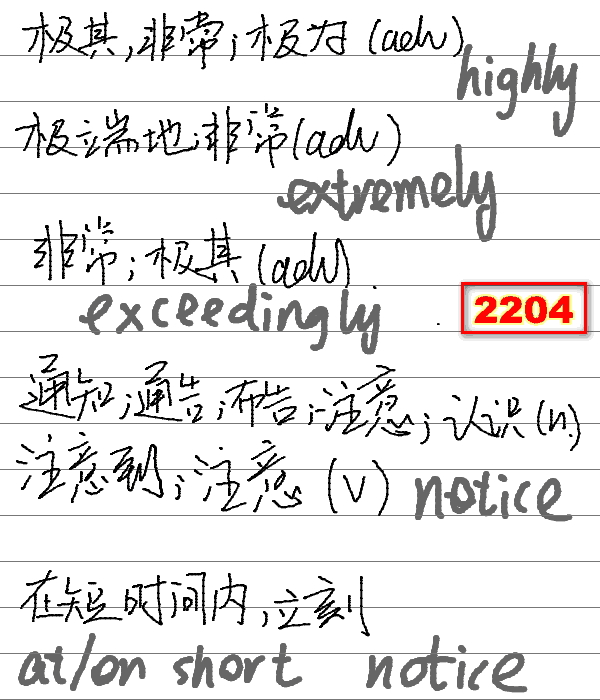 极其,非常;极为(adv)
highly
极端地;非常(adv)
extremely
非常;极其(adv)
exceedingly
2204
通知;通告;布告;注意;认识(n.)
注意到;注意(v) notice
在短时间内,立刻
at/on short notice